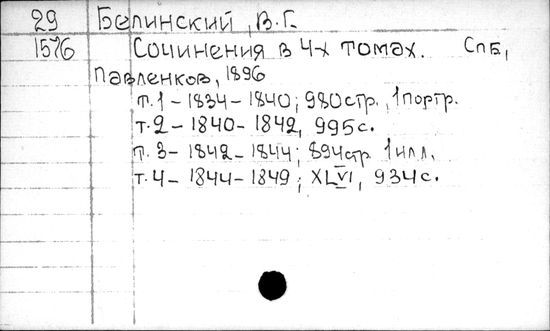 29 Белинский, В.Г.
1576 Сочинения в 4-х томах. Спб,
Павленков, 1896
т.1 - 1834 - 1840; 980стр., 1портр.
т.2 - 1840 - 1842, 995с.
т.3 - 1842 - 1844; 894стр 1илл.
т.4 - 1844 - 1849; XLVI, 934с.